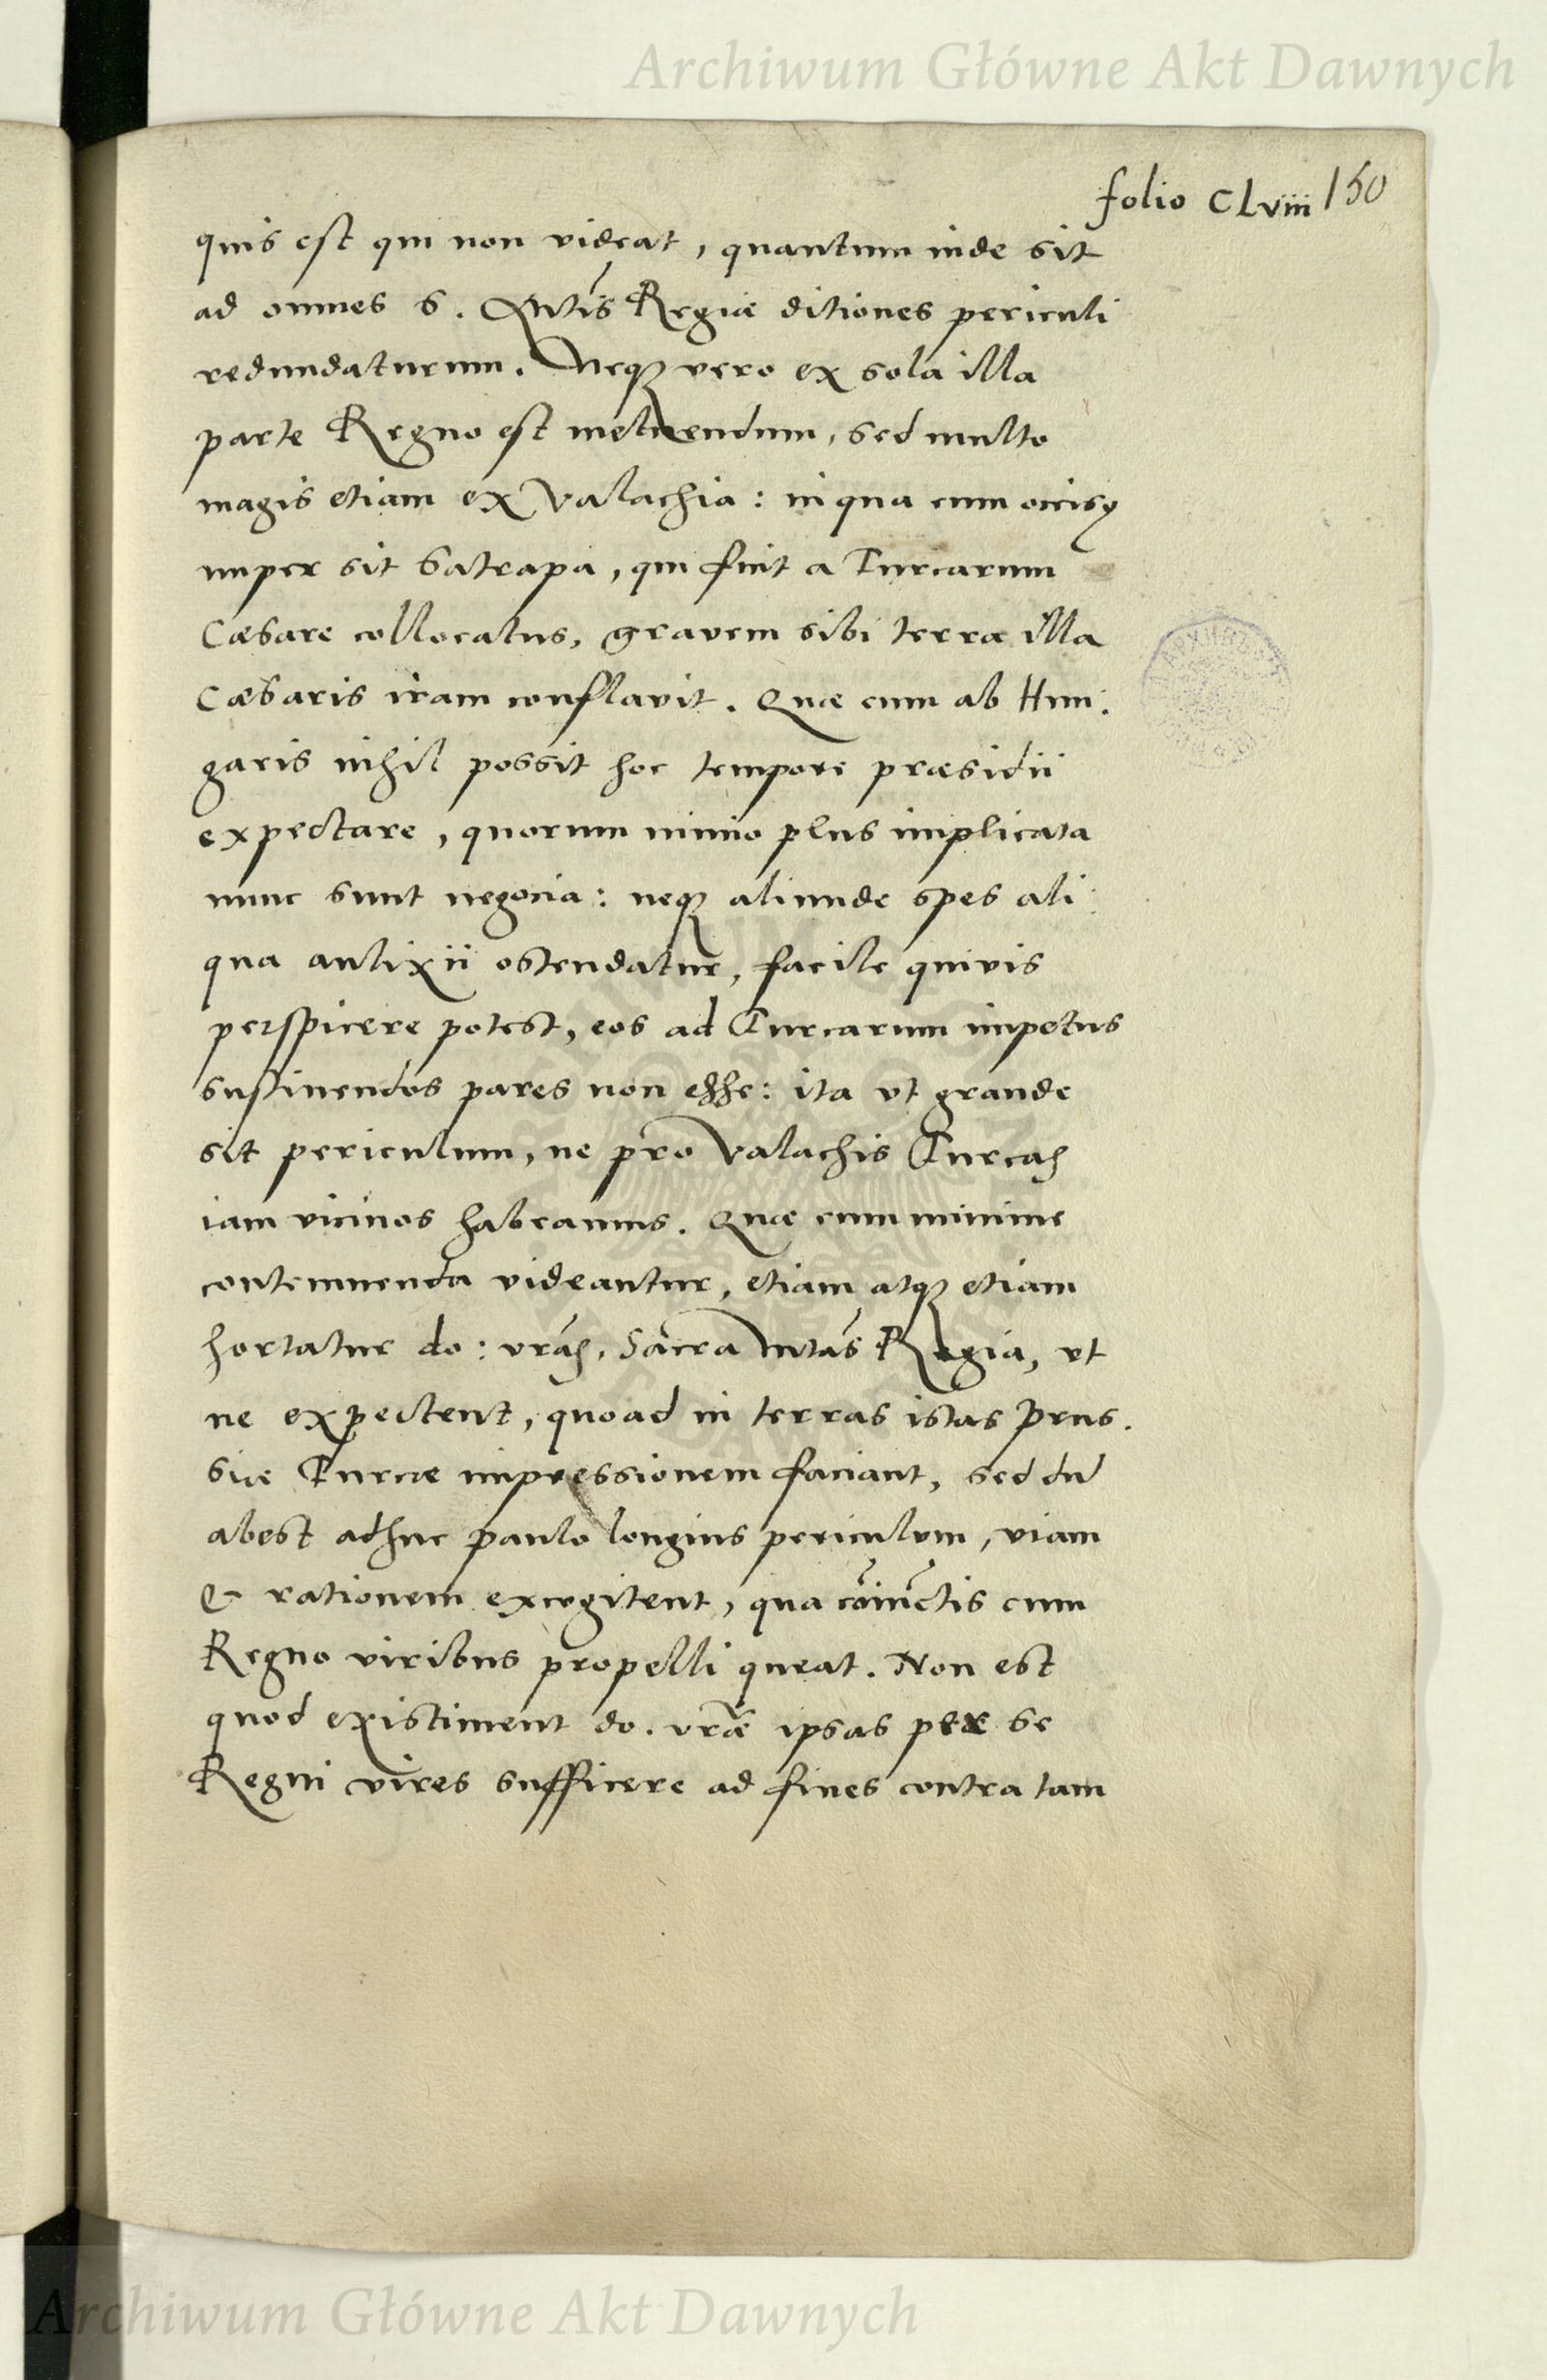 Archiwum Główne Akt Dawnych
folio CLviii 150
quis est qui non videat, quantum inde sit
ad omnes S. Mtis Regiæ ditiones periculi
redundaturum. Neq vero ex sola illa
parte Regno est metuendum, sed multo
magis etiam ex Valachia: in qua cum occisus
nuper sit Satrapa, qui fuit a Turcarum
Cæsare collocatus, gravem sibi terra illa
Cæsaris iram conflavit. Quæ cum ab Hun:
garis nihil possit hoc tempore præsidii
expectare, quorum nimio plus implicata
nunc sunt negocia: neq aliunde spes ali:
qua aulixii ostendatur, facile quivis
perspicere potest, eos ad Turcarum impetus
sustinendos pares non esse: ita vt grande
sit periculum, ne pro Valachis Turcas
iam vicinos habeamus. Quæ cum minime
contemnenda videantur, etiam atq etiam
hortatur do: vras. Sacra Mtas Regia, vt
ne expectent, quoad in terras istas Prus.
siæ Turcæ impressionem faciant, sed dū
abest adhuc paulo longius periculum, viam
& rationem excogitent, qua cōiūctis cum
Regno viribus propelli queat. Non est
quod existiment do. vræ ipsas per se
Regni vires sufficere ad fines contra tam
Archiwum Główne Akt Dawnych